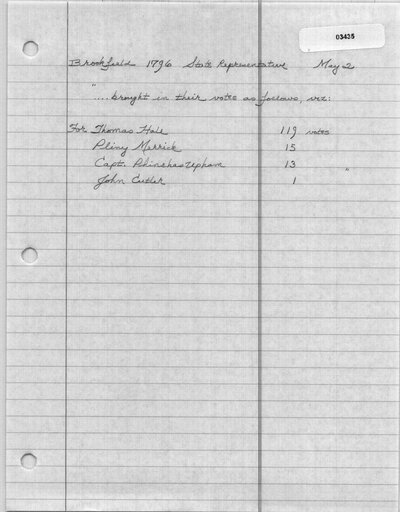 03435
Brookfield 1796 State Representative May 2
"
....brought in their votes as follows, viz:
For Thomas Hale 119 votes
Pliny Merrick 15
Capt. Phinehas Upham 13 "
John Cutler 1